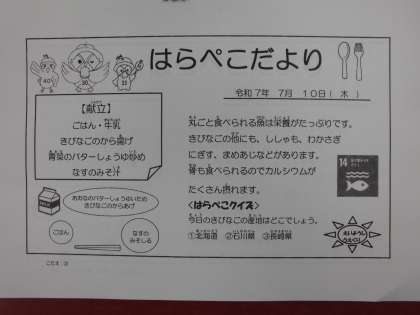 はらぺこだより
令和7年 7月 10日(木)
【献立】
ごはん・牛乳
きびなごのから揚げ
青菜のバターしょうゆ炒め
なすのみそ汁
丸ごと食べられる魚は栄養がたっぷりです。
きびなごの他にも、ししゃも、わかさぎ
にぎす、まめあじなどがあります。
骨も食べられるのでカルシウムが
たくさん摂れます。
<はらぺこクイズ>
今日のきびなごの産地はどこでしょう。
①北海道 ②石川県 ③長崎県
14
あおなのバターしょうゆいため
きびなごのからあげ
ごはん
なすの
みそしる